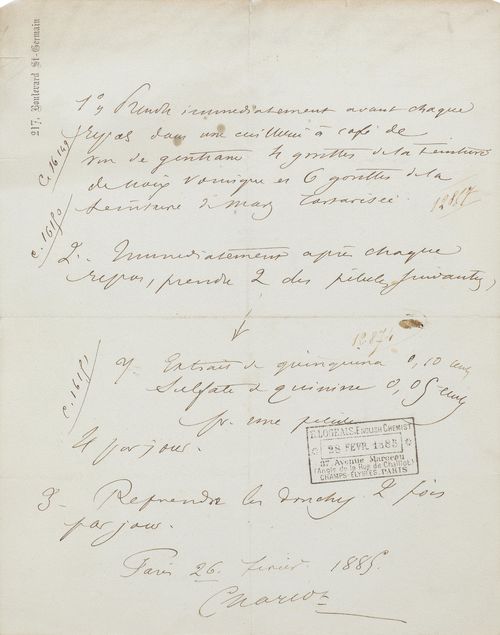 217, Boulevard St-Germain
1º, Prendre immédiatement avant chaque
repas dans une cuillerée à café de
vin de gentiane 4 gouttes de la teinture
de noix vomique et 6 gouttes de la
teinture de Mars tartarisée.
C. 16149
C. 16150
2.. Immédiatement après chaque
repas, prendre 2 des pilules suivantes,
C. 16151
Extrait de quinquina 0,10 cent
Sulfate de quinine 0,05 cent
pr. une pilule
4 par jour.
ROGEAIS, ENGLISH CHEMIST
28 FEVR 1885
37, Avenue Marceau
Angle de la Rue de Chaillot
CHAMPS-ÉLYSÉES, PARIS
3 - Reprendre les douches 2 fois
par jour.
Paris 26 février 1885.
Charcot